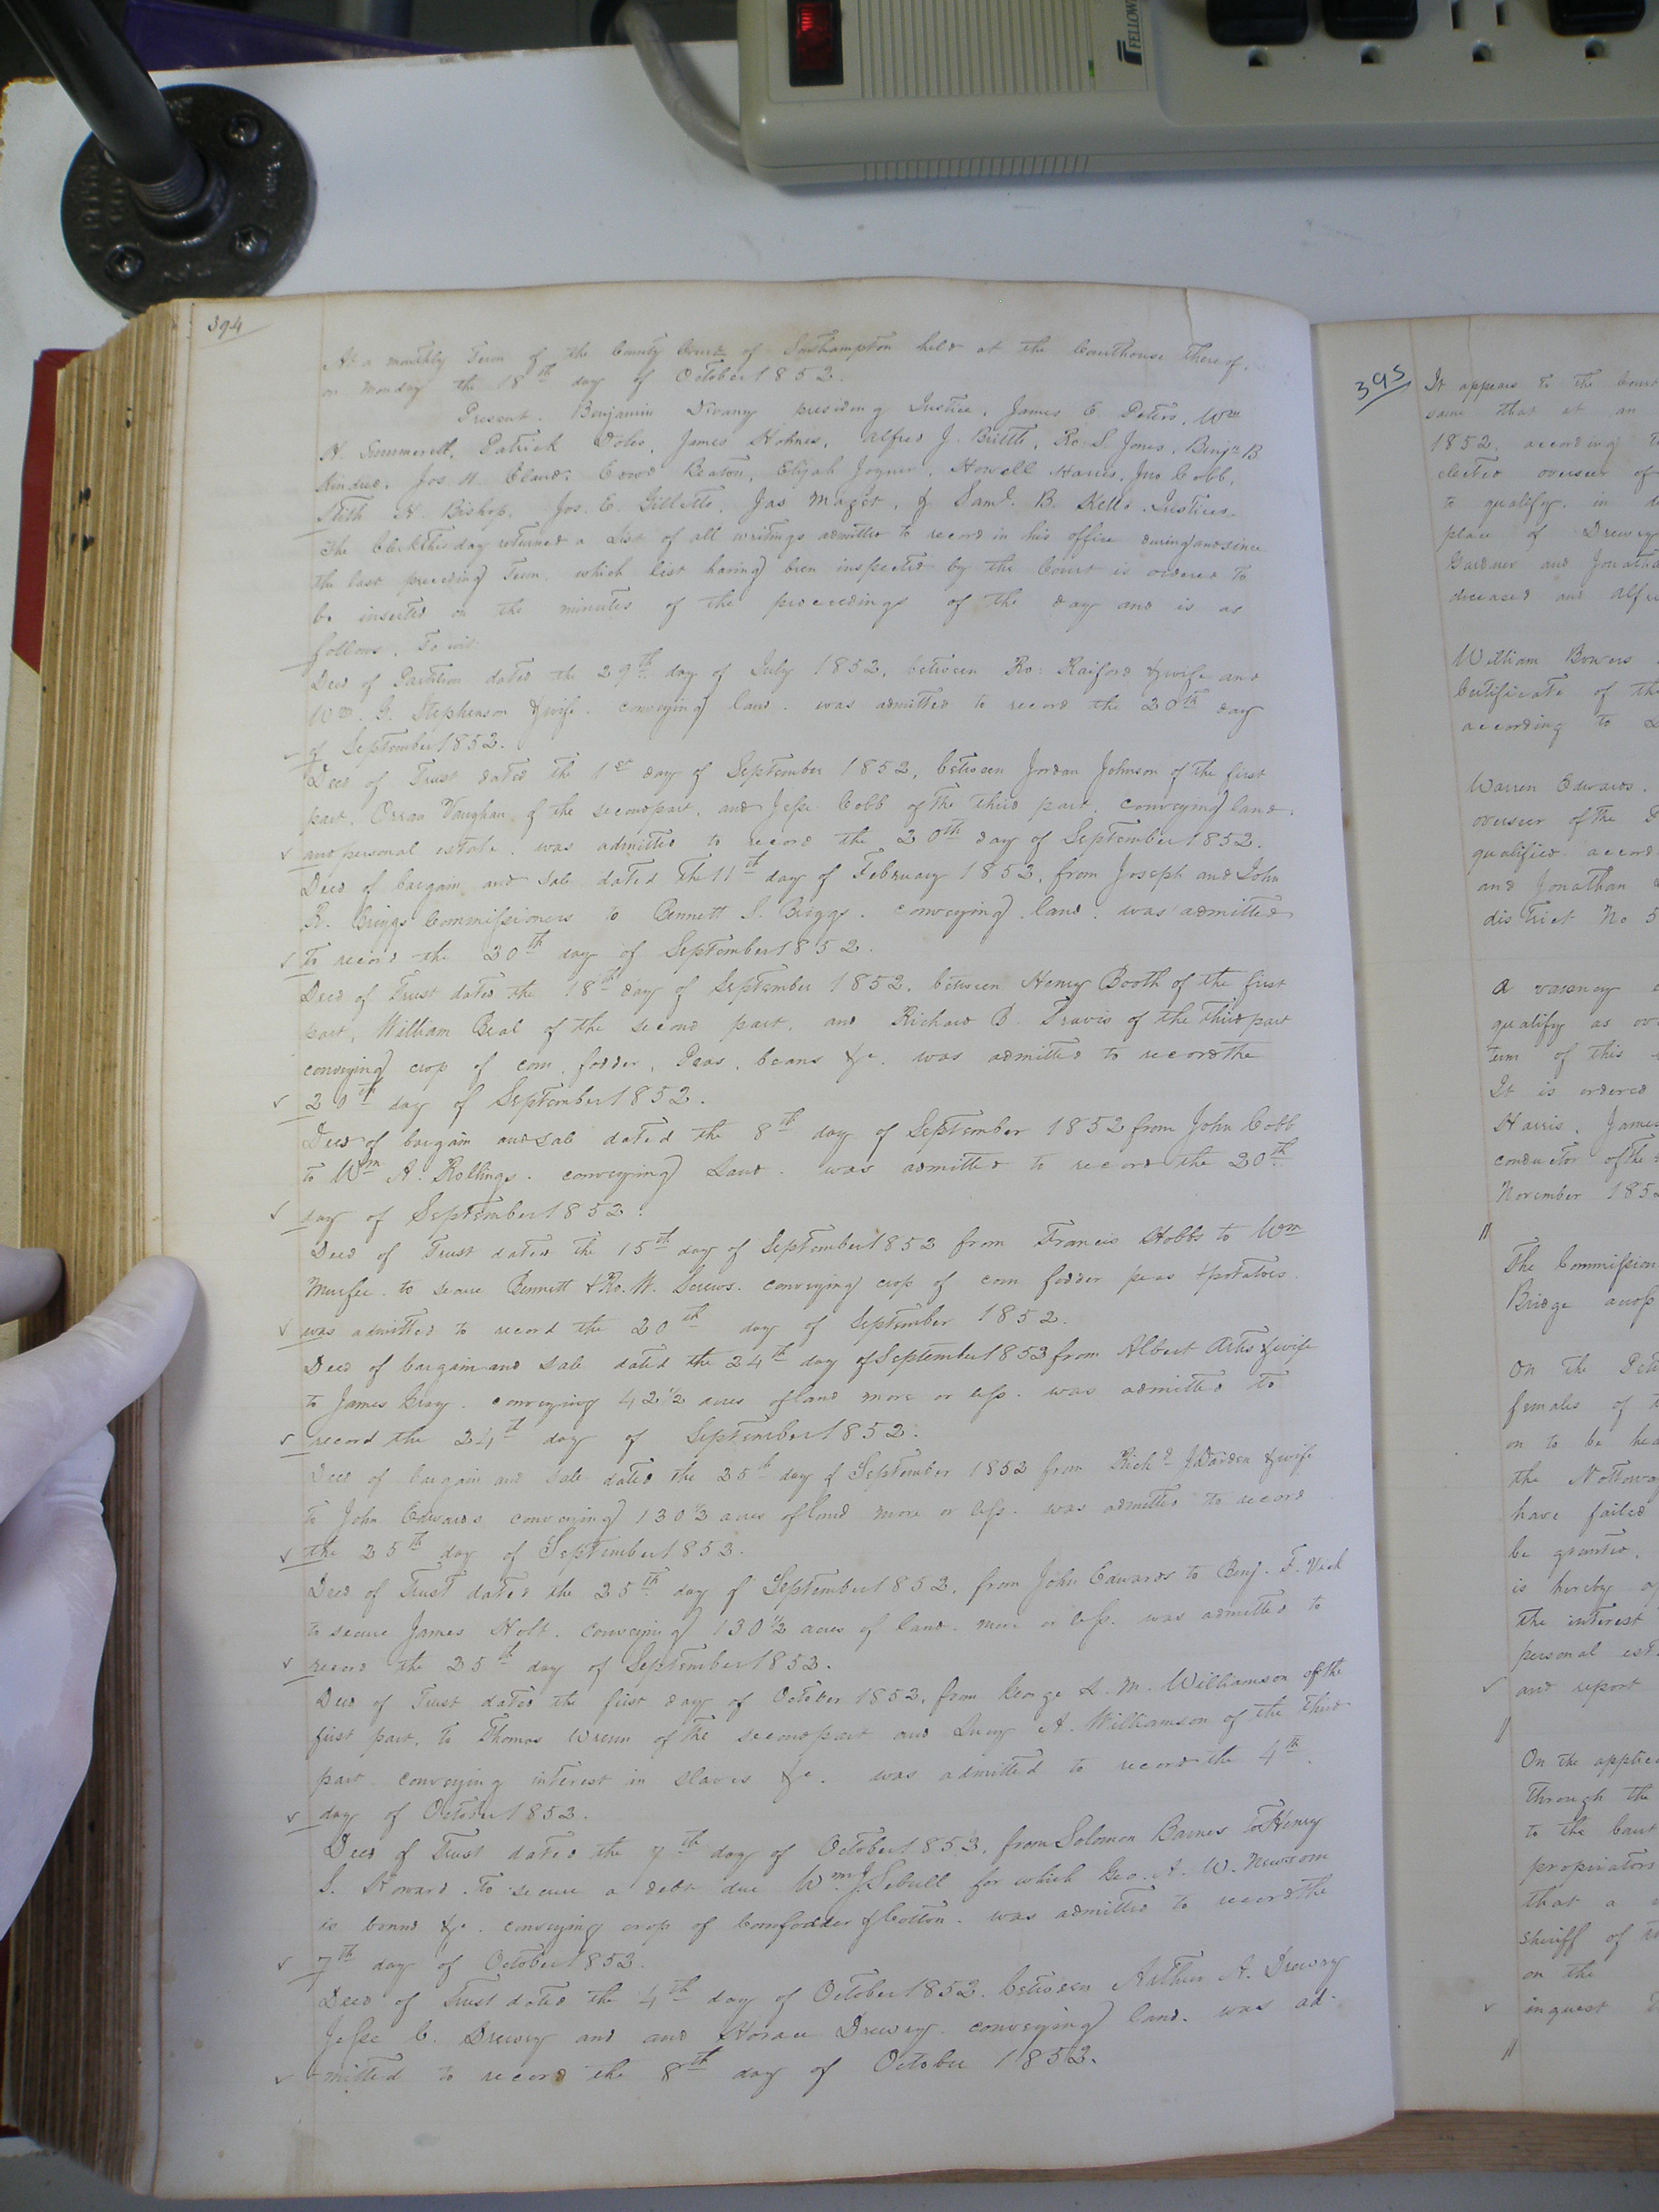 FELLOWES
394
At a monthly Term of the County Court of Southampton held at the Courthouse thereof,
on Monday the 18th day of October 1852.
Present. Benjamin Devany presiding Justice, James E. Peters, Wm
H. Summerell, Patrick Doles, James Holmes, Alfred J. Brittle, Ro. S. Jones, Benjn B
Kindred, Jos. H. Eland, Edwd Beaton, Elijah Joyner, Howell Harris, Jno Cobb,
Stith H. Bishop, Jos. E. Gillette, Jas Maget, & Saml. B. Kello Justices
The Clerk this day returned a List of all writings admitted to record in his office during and since
the last preceding Term, which list having been inspected by the Court is ordered to
be inserted on the minutes of the proceedings of the day and is as
follows, To wit:
Deed of Partition dated the 29th day of July 1852, between Ro: Raiford & wife and
Wm. G. Stephenson & wife. conveying land. was admitted to record the 20th day
of September 1852.
Deed of Trust dated the 1st day of September 1852, between Jordan Johnson of the first
part, Orran Vaughan of the second part, and Jesse Cobb of the third part, conveying land
and personal estate. was admitted to record the 20th day of September 1852.
Deed of bargain and sale dated the 11th day of February 1852, from Joseph and John
R. Briggs Commissioners to Bennett S. Briggs. conveying land. was admitted
to record the 20th day of September 1852.
Deed of Trust dated the 18th day of September 1852, between Henry Booth of the first
part, William Beal of the second part, and Richard B. Travis of the third part
conveying crop of corn, fodder, Peas, beans &c. was admitted to record the
20th day of September 1852.
Deed of bargain and sale dated the 8th day of September 1852 from John Cobb
to Wm A. Rollings. conveying Land. was admitted to record the 20th
day of September 1852.
Deed of Trust dated the 15th day of September 1852 from Francis Hobbs to Wm
Murfee to secure Bennett & Ro. W. Screws. conveying crop of corn fodder peas & potatoes
was admitted to record the 20th day of September 1852.
Deed of bargain and sale dated the 24th day of September 1852 from Albert Artis & wife
to James Gray. conveying 42 1/2 acres of land more or less. was admitted to
record the 24th day of September 1852.
Deed of bargain and sale dated the 25th day of September 1852 from Richd J Darden & wife
to John Edwards conveying 130 1/2 acres of land more or less. was admitted to record
the 25th day of September 1852.
Deed of Trust dated the 25th day of September 1852, from John Edwards to Benj. F. Vick
to secure James Holt. conveying 130 1/2 acres of land. more or less. was admitted to
record the 25th day of September 1852.
Deed of Trust dated the first day of October 1852, from George L. M. Williamson of the
first part, to Thomas Wrenn of the second part and Lucy A. Williamson of the third
part conveying interest in slaves &c. was admitted to record the 4th
day of October 1852.
Deed of Trust dated the 7th day of October 1852, from Solomon Barnes to Henry
S. Howard. to secure a debt due Wm J. Sebrell for which Geo. A. W. Newsom
is bound &c. conveying crop of Corn fodder & Cotton. was admitted to record the
7th day of October 1852.
Deed of Trust dated the 4th day of October 1852. between Arthur A. Drewry
Jesse C. Drewry and and Horace Drewry. conveying land. was ad-
mitted to record the 8th day of October 1852.
395
It appears to the Court
same that at an
1852, according
elected overseer of
to qualify, in
place of Drewry
Gardner and Jonatha
deceased and Alfre
William Bowers
Certificate of the
according to
Warren Edwards,
overseer of the
qualified accord
and Jonathan
district No 5
A vacancy
qualify as ov
term of this
It is ordered
Harris, James
conductor of the
November 1852
The Commission
Bridge across
On the Peti
females of
on to be hea
the Nottoway
have failed
be granted,
is hereby
the interest
personal est
and report
On the applic
through the
to the Court
proprietors
that a
sheriff of
on the
inquest